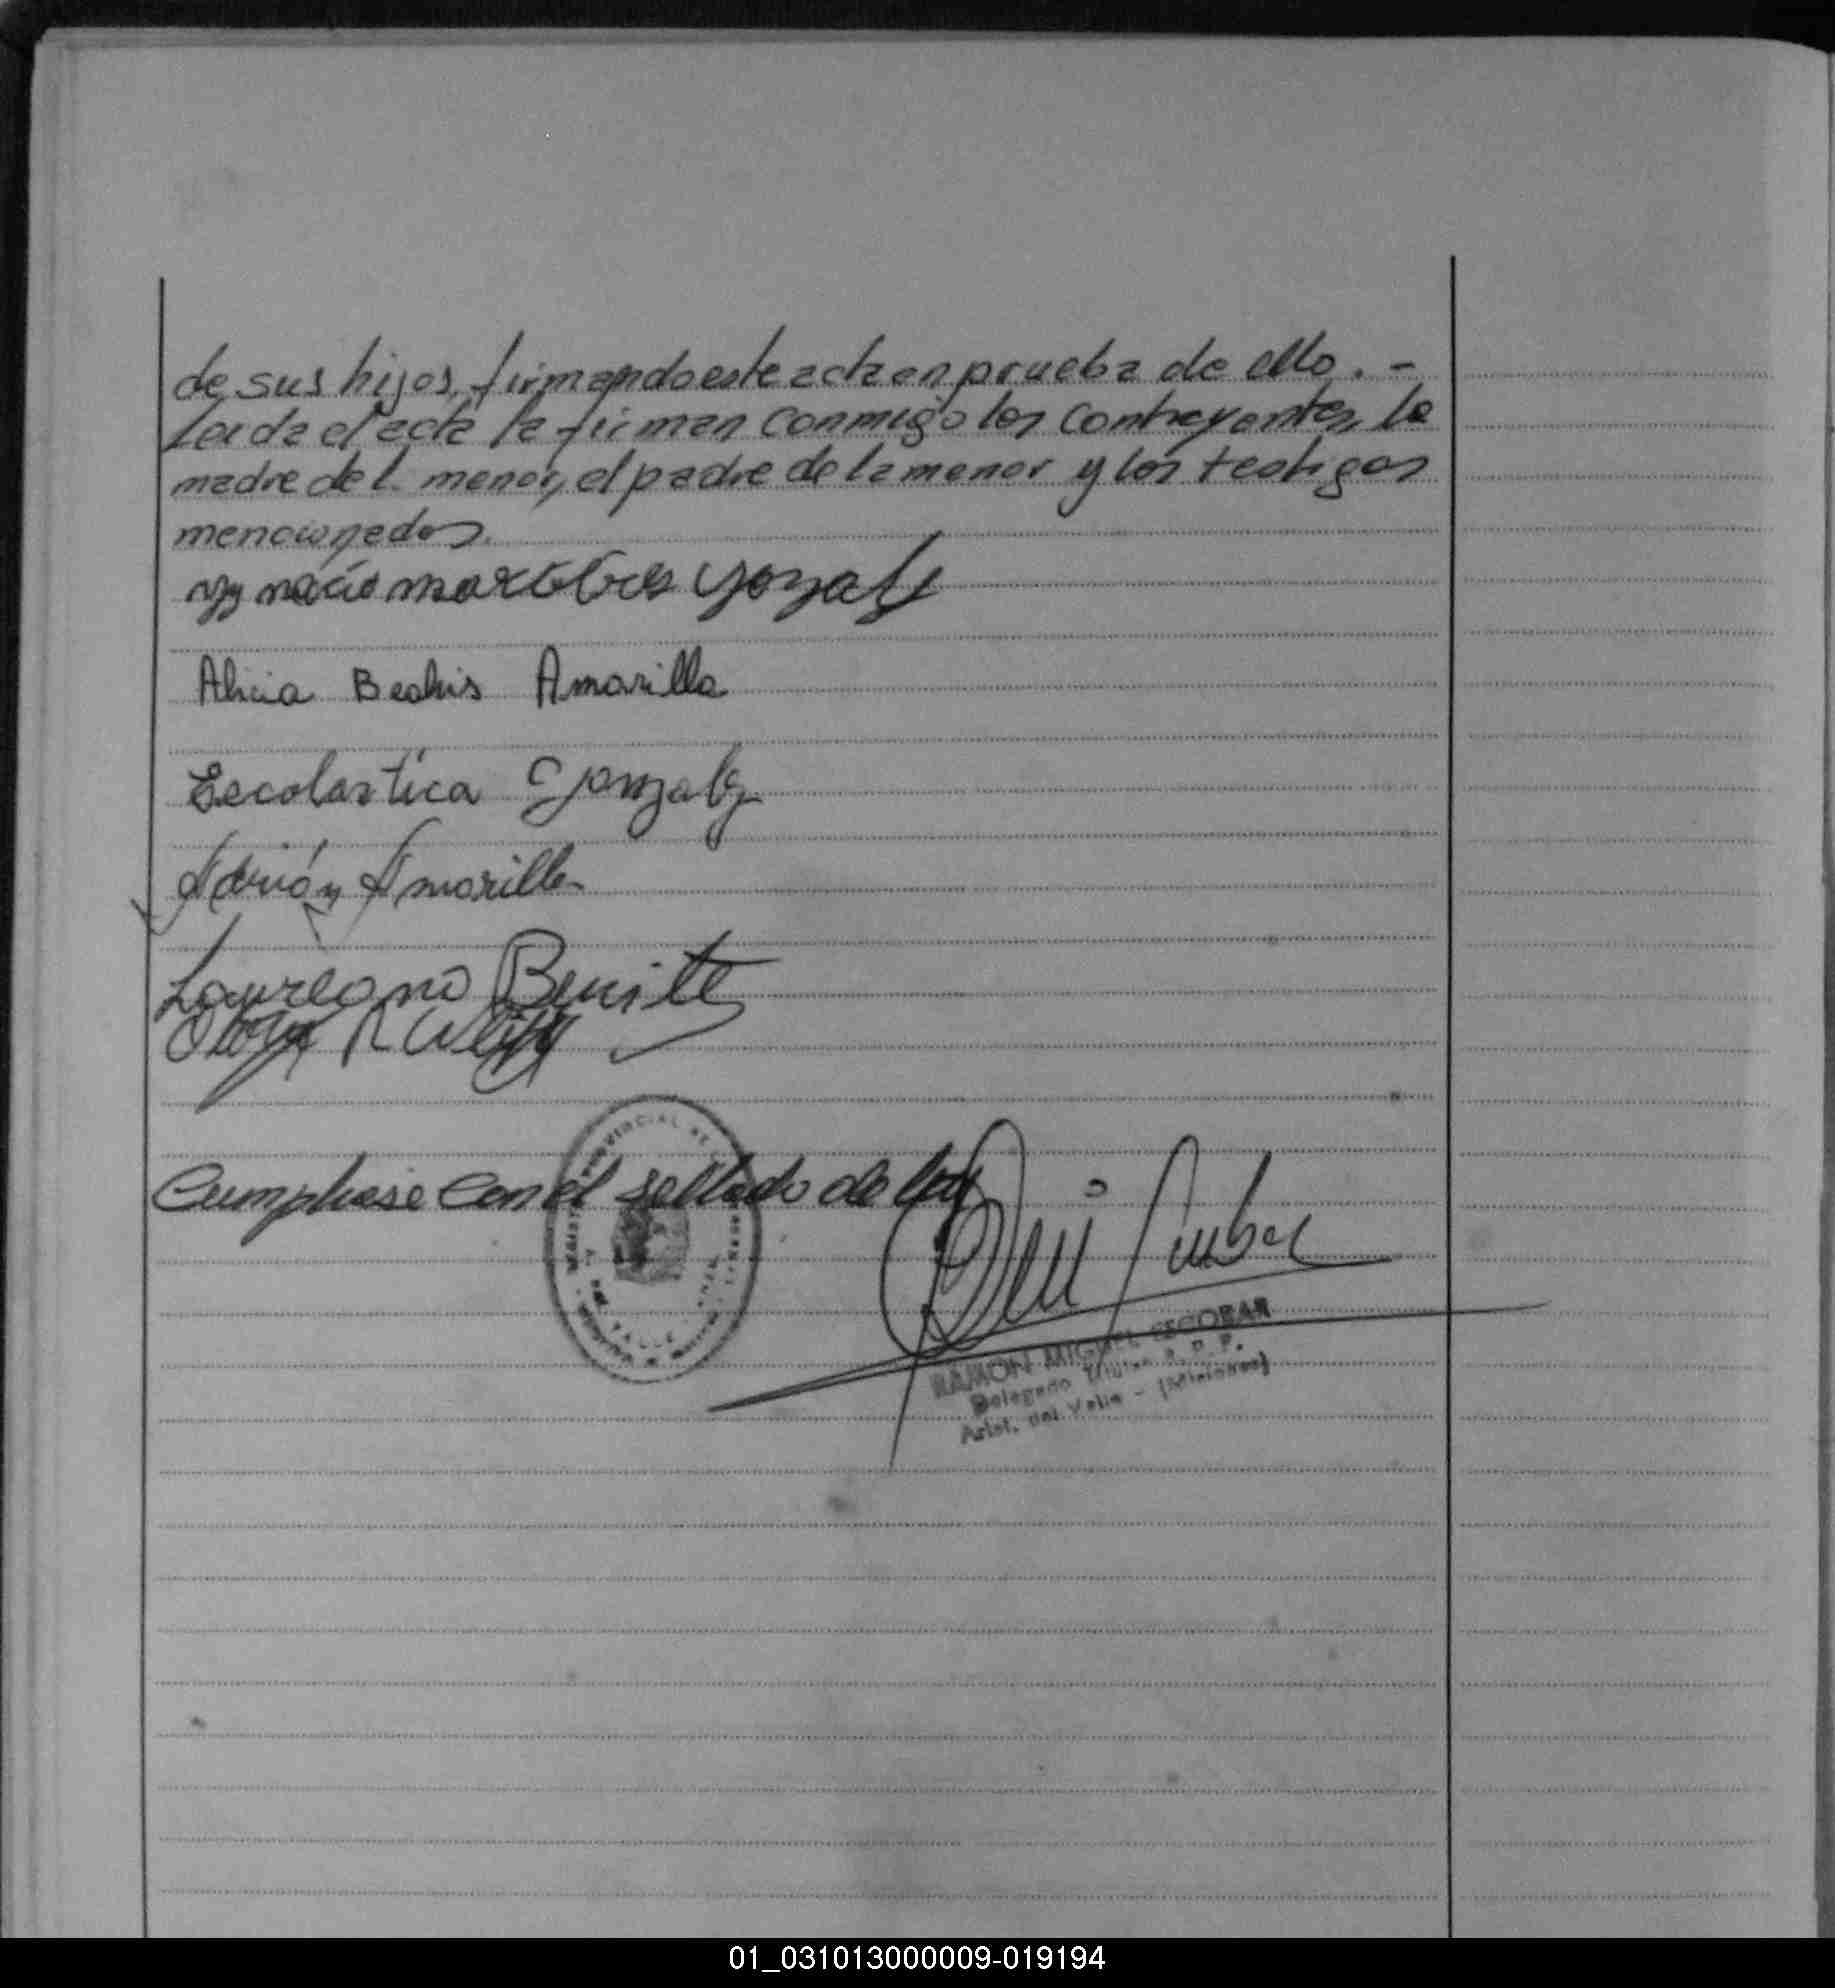 de sus hijos, firmando este acta en prueba de ello. -
Leida el acta la firman conmigo los contrayentes, la
madre del menor, el padre de la menor y los testigos
mencionados.
Ygnacio
Alicia Beatris Amarilla
Escolastica Gonzalez
Adrión Amarilla
Laureano Benite
Cumplase con el sellado de ley
PROVINCIAL DE
VALLE
RAMON MIGUEL ESCOBAR
Delegado Titular R. P. P.
Arist. del Valle - (Misiones)
01_031013000009-019194